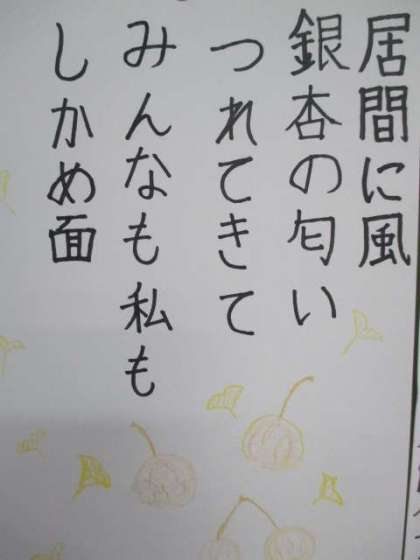 居間に風
銀杏の匂い
つれてきて
みんなも私も
しかめ面